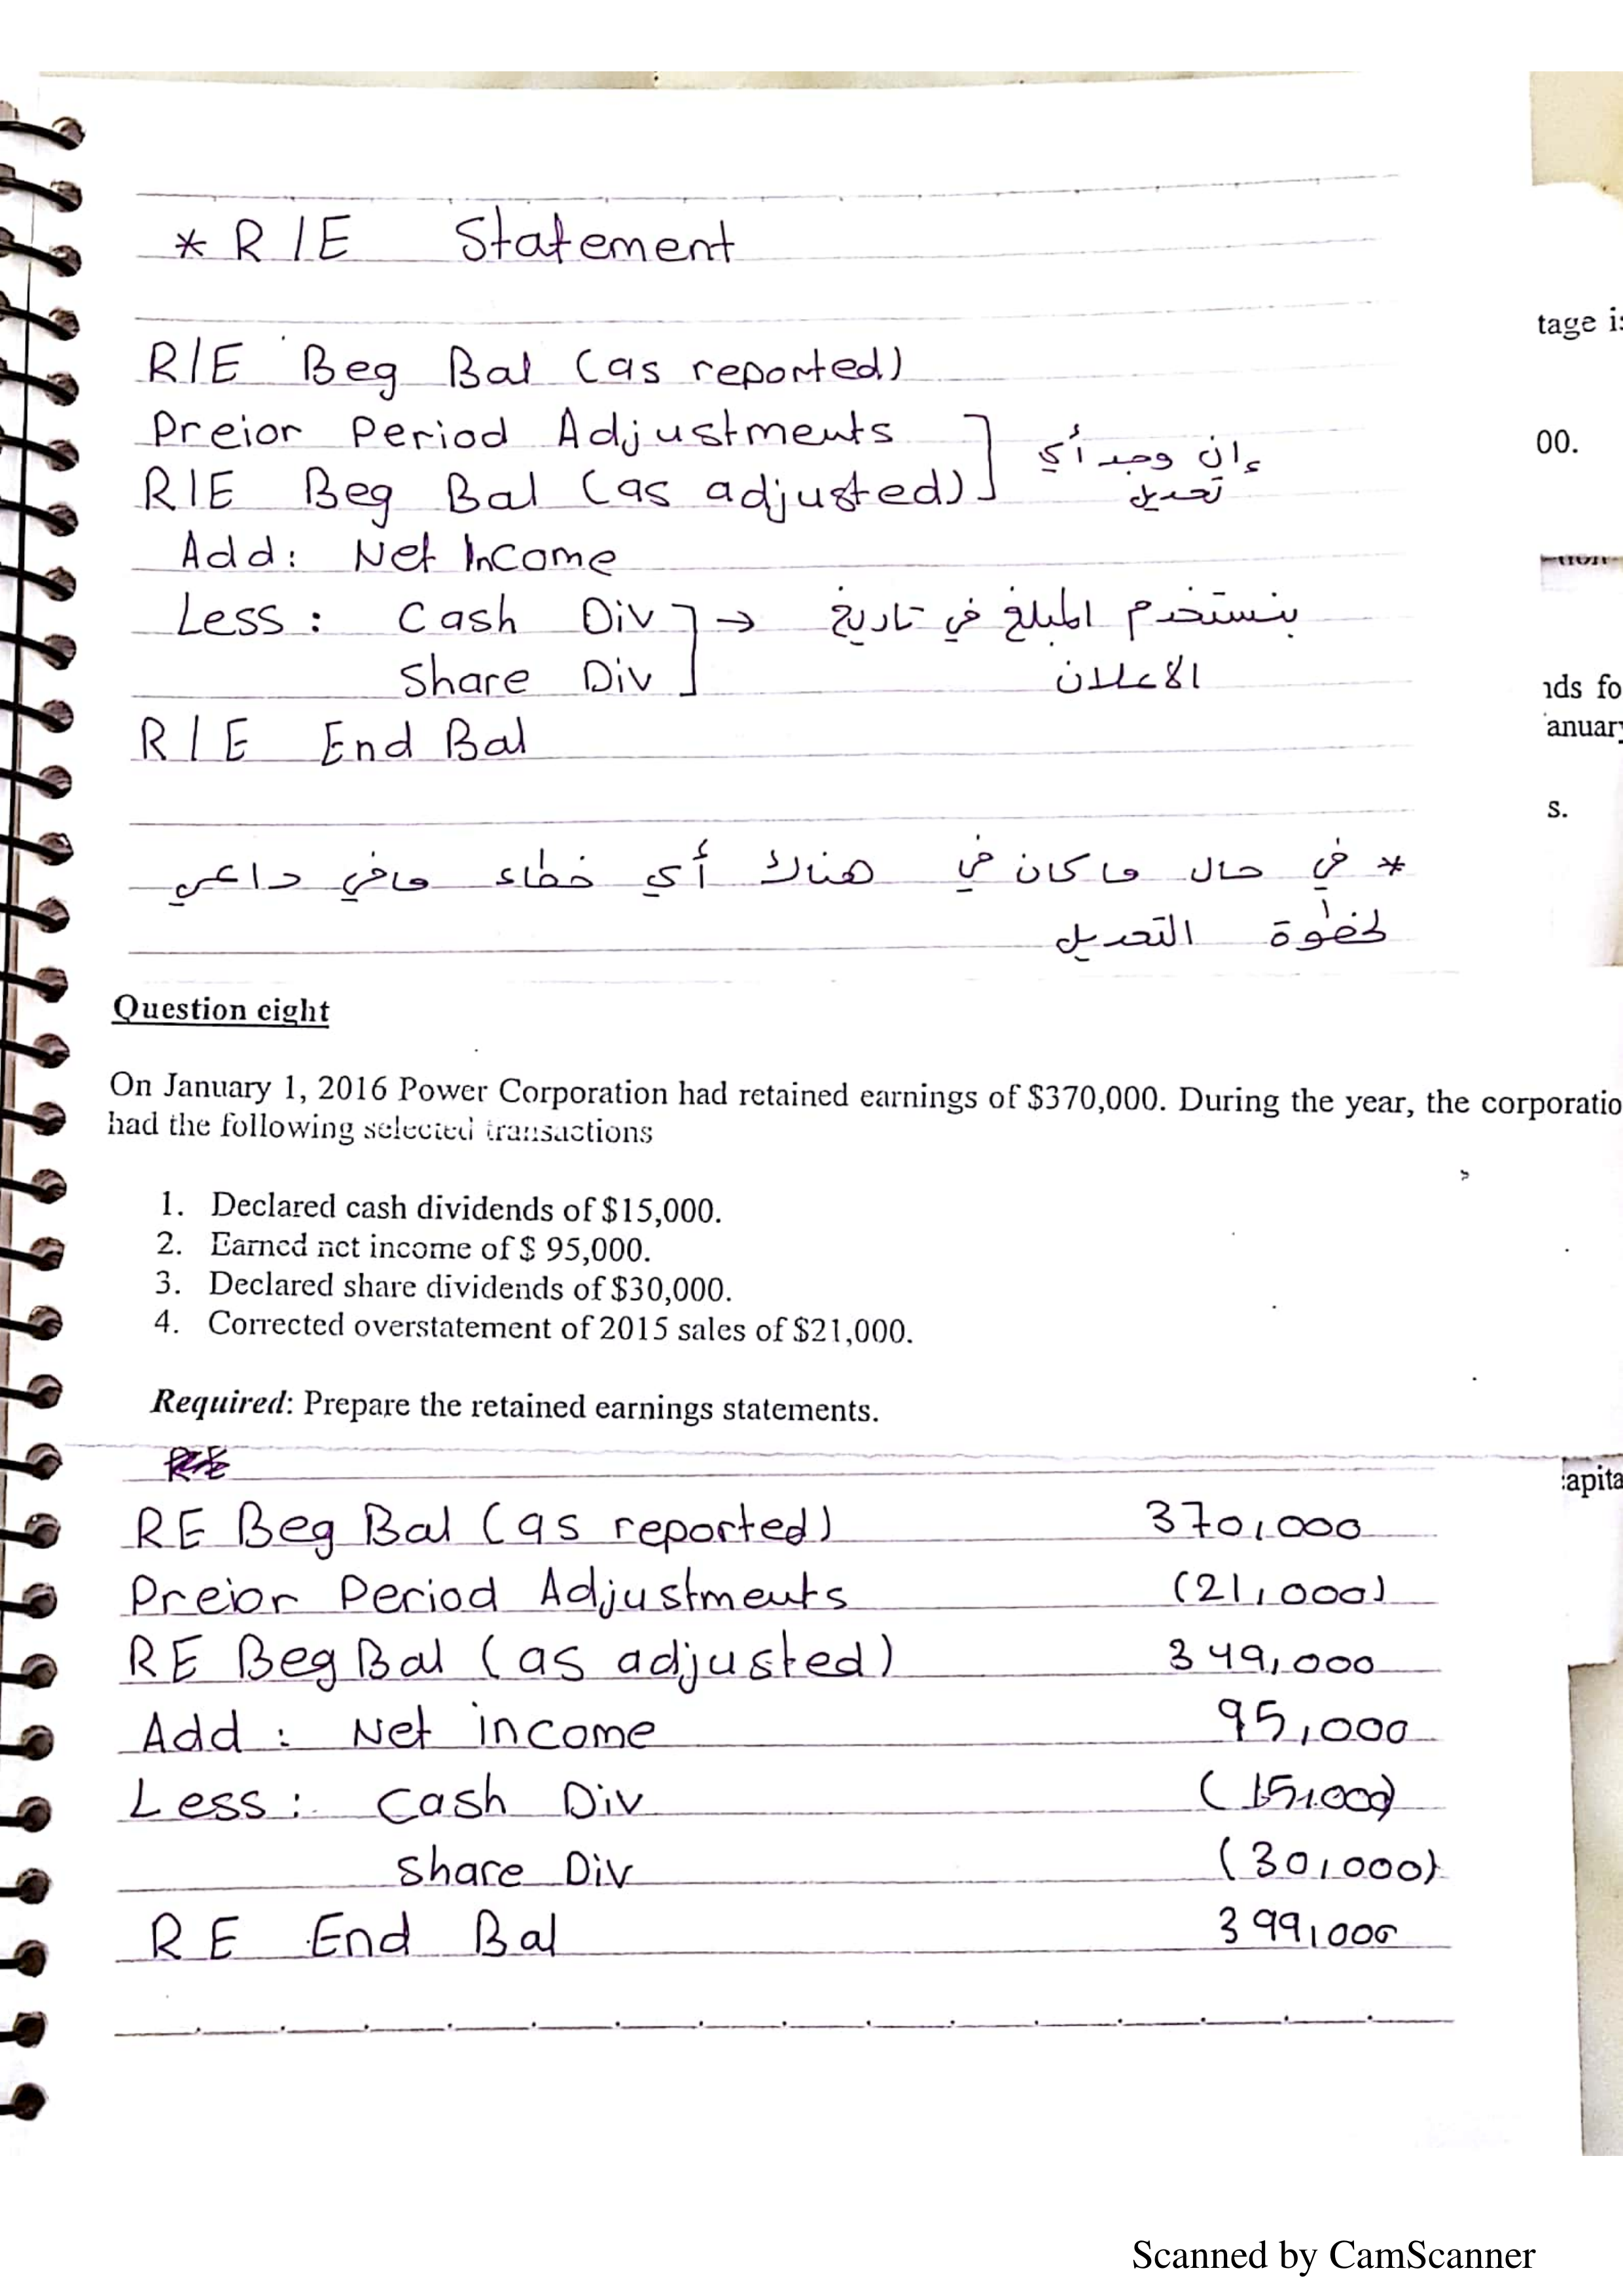 * R/E Statement
tage i
R/E Beg Bal (as reported)
Preior Period Adjustments
إن وجد أي
00.
R/E Beg Bal (as adjusted)
تعديل
Add: Net Income
Less: Cash Div → بنستخدم المبلغ في تاريخ
Share Div الاعلان
nds fo
R/E End Bal
anuary
s.
* في حال ما كان في هناك أي خطاء مافي داعي
لخطوة التعديل
Question eight
On January 1, 2016 Power Corporation had retained earnings of $370,000. During the year, the corporatio
had the following selected transactions
1. Declared cash dividends of $15,000.
2. Earned net income of $ 95,000.
3. Declared share dividends of $30,000.
4. Corrected overstatement of 2015 sales of $21,000.
Required: Prepare the retained earnings statements.
apita
RE Beg Bal (as reported) 370,000
Preior Period Adjustments (21,000)
RE Beg Bal (as adjusted) 349,000
Add: Net income 95,000
Less: Cash Div (15,000)
Share Div (30,000)
RE End Bal 399,000
Scanned by CamScanner